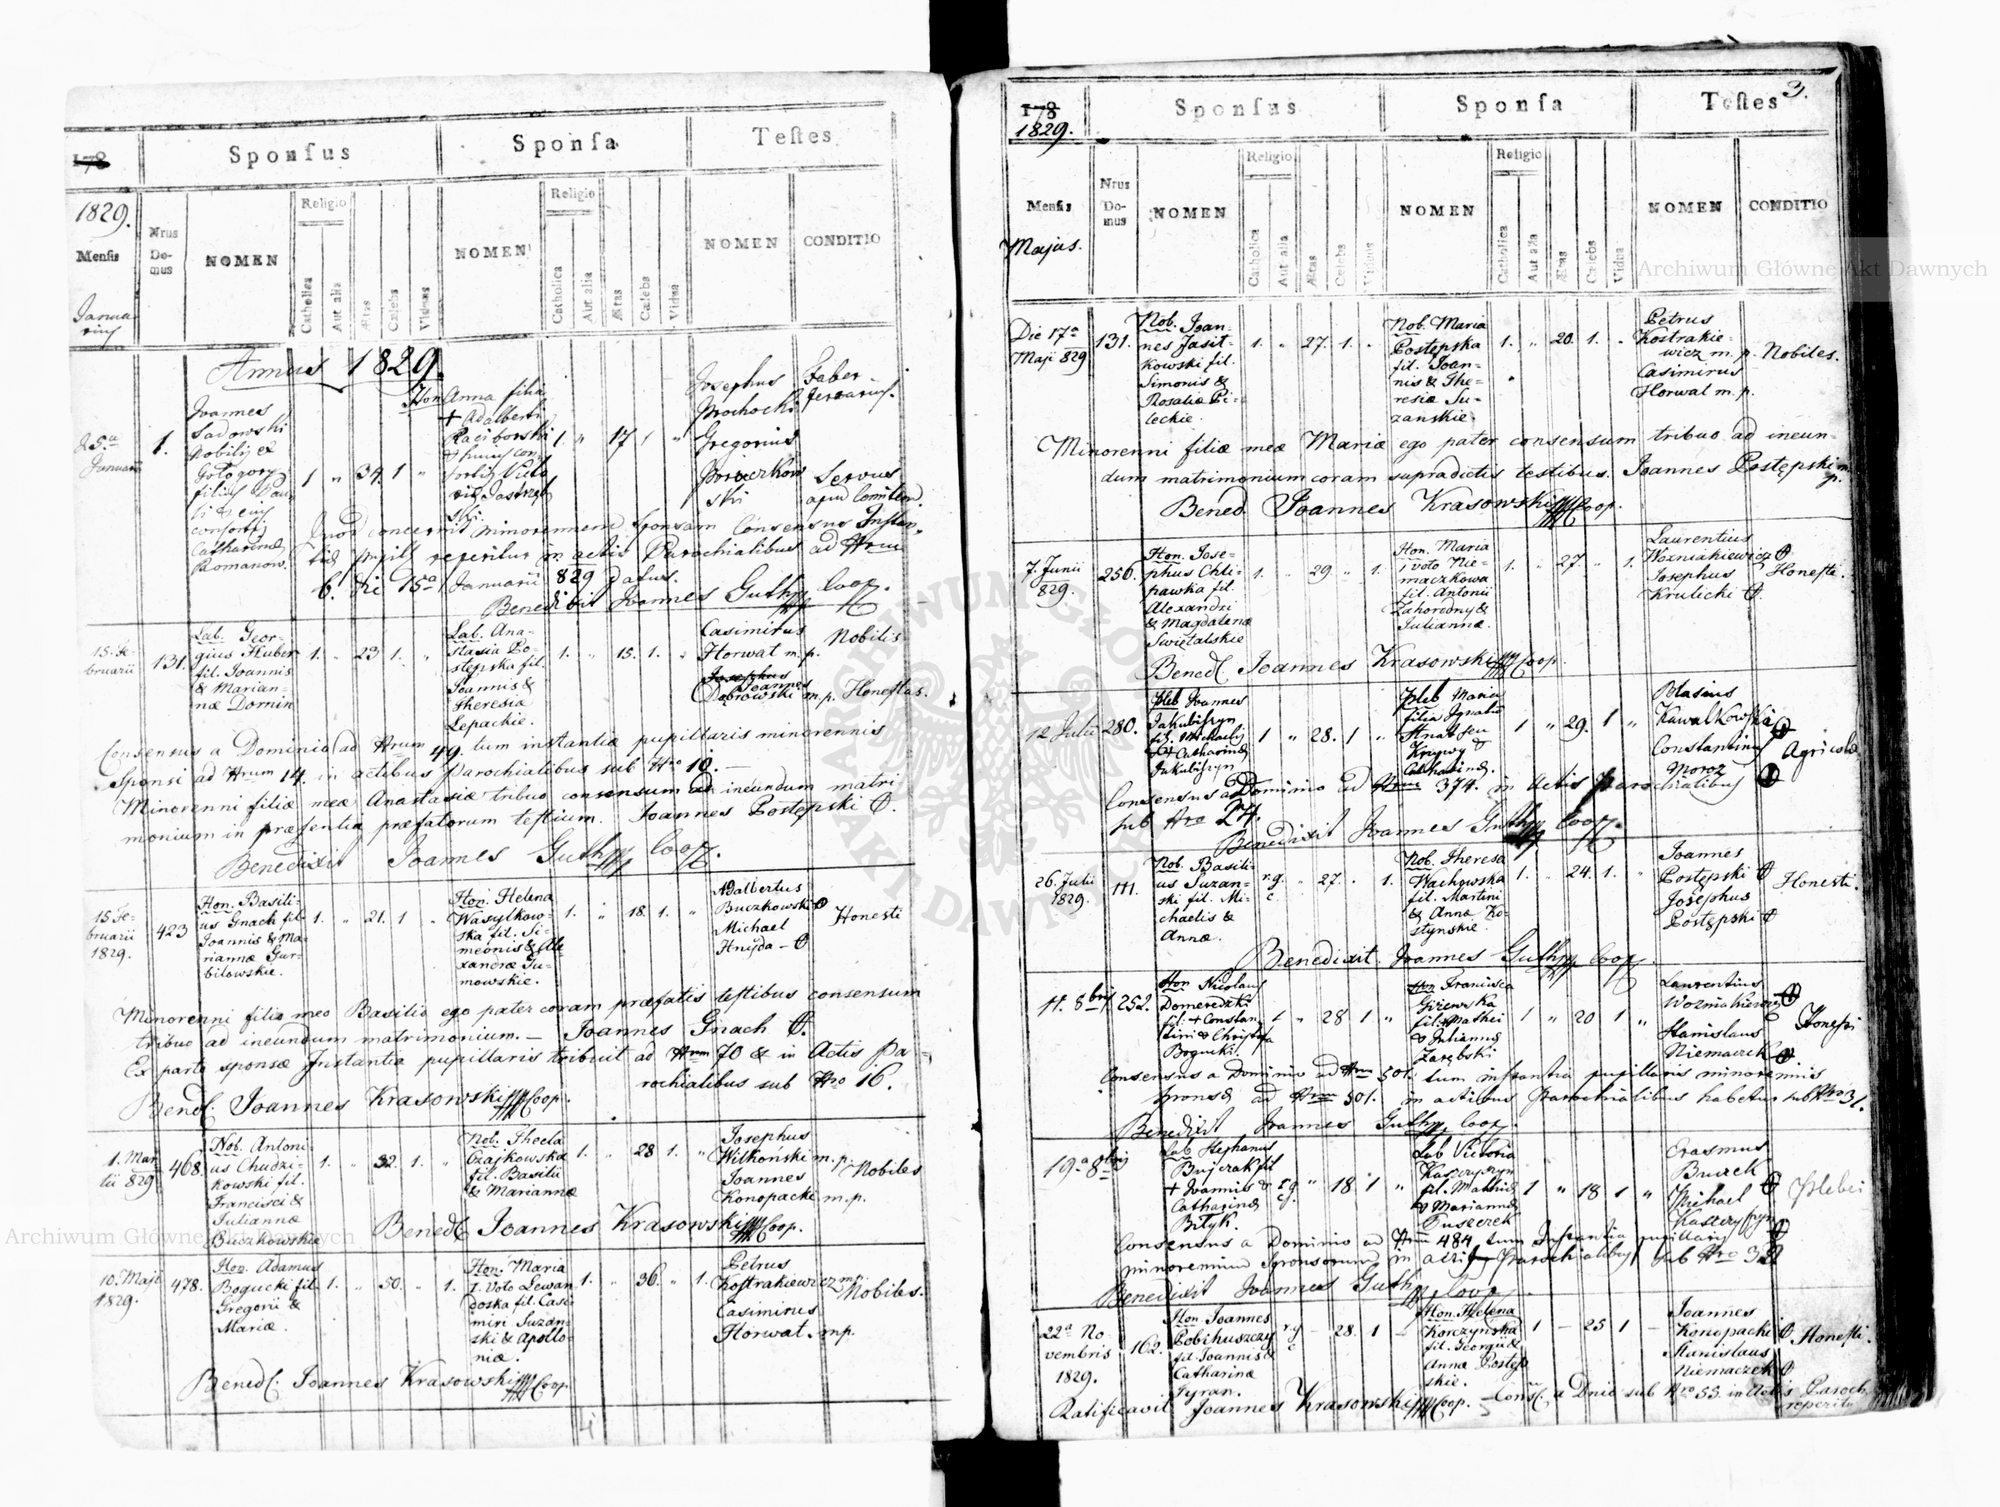 178
Sponsus
Sponsa
Testes
1829.
Mensis
Januarius
Nrus Domus
NOMEN
Religio
Catholica
Aut alia
Ætas
Cælebs
Viduus
NOMEN
Religio
Catholica
Aut alia
Ætas
Cælebs
Vidua
NOMEN
CONDITIO
Annus 1829.
25.a
Januarii
1.
Joannes
Sadowski
Nobilis ex
Gologory
filius Pau
li & ejus
consortis
Catharinæ
Romanow.
1 " 34. 1 "
Hon Anna filia
+ Adalberti
Raciborski
& hujus con
sortis Victo
riæ Jastrzęb
ski.
1. " 17 1 "
Josephus
Prochocki
Gregorius
Boraczkow
ski
Faber
ferrarius.
Servus
apud Comitem
Quod concernit minorennem Sponsam Consensus Instan
tiæ pupill: reperitur in actis Parochialibus ad Nrum
6. Die 15a Januarii 829 datus.
Benedixit Joannes Guth Coop.
15. Fe-
bruarii
131.
Lab. Geor-
gius Huber
fil. Joannis
& Marian-
næ Dornin
1. " 23 1. "
Lab. Ana-
stasia Po-
stępska fil.
Joannis &
Theresiæ
Lepackie.
1. " 15. 1. "
Casimirus
Horwat m. p.
Josephus
Joannes
Dąbrowski m. p.
Nobilis
Honestus.
Consensus a Dominio ad Nrum 49. tum instantiæ pupillaris minorennis
Sponsi ad Nrum 14. in actibus parochialibus sub Nro 10. —
Minorenni filiæ meæ Anastasiæ tribuo consensum ad ineundum matri
monium in præsentia præfatorum testium. Joannes Postępski
Benedixit Joannes Guth Coop.
15. Fe-
bruarii
1829.
423
Hon. Basili-
us Gnach fil.
Joannis & Ma-
riannæ Gur-
bilowskie.
1. " 21. 1 "
Hon. Helena
Wasylkow-
ska fil. Si-
meonis & Ale
xandræ Tu-
mowskie.
1. " 18. 1. "
Adalbertus
Buczkowski
Michael
Hnijda
Honesti
Minorenni filio meo Basilio ego pater coram præfatis testibus consensum
tribuo ad ineundum matrimonium. — Joannes Gnach
Ex parte sponsæ Instantia pupillaris tribuit ad Nrum 70 & in Actis Pa-
rochialibus sub Nro 16.
Bened. Joannes Krasowski Coop.
1. Mar
tii 829
468.
Nob. Antoni-
us Chudzi-
kowski fil.
Francisci &
Juliannæ
Buczkowskie
1. " 32. 1. "
Nob. Thecla
Czajkowska
fil. Basilii
& Mariannæ
1. " 28 1. "
Josephus
Witkoński m. p.
Joannes
Konopacki m. p.
Nobiles
Bened. Joannes Krasowski Coop.
10. Maji
1829.
478.
Hon. Adamus
Bogucki fil.
Gregorii &
Mariæ.
1. " 50. " 1.
Hon. Maria
1. Voto Lewan
doska fil. Casi-
miri Suzań-
ski & Apollo-
niæ.
1. " 36. " 1.
Petrus
Kostrakiewicz mp.
Casimirus
Horwat mp.
Nobiles.
Bened. Joannes Krasowski Coop.
4
178
1829.
Sponsus
Sponsa
Testes
3.
Mensis
Majus.
Nrus Domus
NOMEN
Religio
Catholica
Aut alia
Ætas
Cælebs
Viduus
NOMEN
Religio
Catholica
Aut alia
Ætas
Cælebs
Vidua
NOMEN
CONDITIO
Die 17a
Maji 829
131.
Nob. Joan-
nes Jasit-
kowski fil.
Simonis &
Rosaliæ Pi-
leckie.
1. " 27. 1. "
Nob. Maria
Postępska
fil. Joan-
nis & The-
resiæ Su-
zanskie.
1. " 20. 1. "
Petrus
Kostrakie-
wicz m. p.
Casimirus
Horwat m. p.
Nobiles.
Minorenni filiæ meæ Mariæ ego pater consensum tribuo ad ineun-
dum matrimonium coram supradictis testibus. Joannes Postępski m.
p.
Bened. Joannes Krasowski Coop.
7. Junii
829.
256.
Hon. Jose-
phus Chli-
pawka fil.
Alexandri
& Magdalenæ
Swiętalskie
1. " 29 " 1.
Hon. Maria
1 voto Nie-
maczkowa
fil. Antonii
Zahorodny &
Juliannæ.
1. " 27. " 1.
Laurentius
Wozniakiewicz
Josephus
Krulicki
Honesti.
Bened. Joannes Krasowski Coop.
12 Julii
280.
Pleb Joannes
Jakubiszyn
fil. Michaelis
& Catharinæ
Jakubiszyn
1 " 28. 1 "
Pleb Maria
filia Ignatii
Hnat seu
Krzywy &
Catharinæ.
1 " 29. 1 "
Blasius
Kawalkowski
Constantinus
Moroz
Agricolæ
Consensus a Dominio ad Nrum 374. in Actis parochialibus
sub Nro 24.
Benedixit Joannes Guth Coop.
26. Julii
1829.
111.
Nob. Basili-
us Suzan-
ski fil. Mi-
chaelis &
Annæ.
r.g.
c.
" 27. " 1.
Nob. Theresa
Wachowska
fil. Martini
& Annæ Ko-
stynskie.
1. " 24. 1. "
Joannes
Postępski
Josephus
Postępski
Honesti.
Benedixit Joannes Guth Coop.
11. 8bris
252.
Hon Nicolaus
Domeredzki
fil. + Constan
tini & Christina
Bogucki.
1 " 28 1 "
Hon Francisca
Gizewska
fil. Mathei
& Juliannæ
Zarębski
1 " 20 1 "
Laurentius
Wozniakiewicz
Stanislaus
Niemaczek
Honesti
Consensus a Dominio ad Nrum 501. tum instantia pupillaris minorennis
sponsæ ad Nrum 501. in actibus Parochialibus habetur sub Nro 31.
Benedixit Joannes Guth Coop.
19a 8bris
Lab Stephanus
Bujczak fil
+ Joannis &
Catharinæ
Bityk.
r.g
c.
" 18 1 "
Lab Victoria
Kaszczyszyn
fil. Matthiæ
& Mariannæ
Tuszczek
1 " 18 1 "
Erasmus
Burek
Michael
Kaszczyszyn
Plebei
Consensus a Dominio ad Nrum 484, tum Instantia pupillaris
minorennium Sponsorum in actis Parochialibus sub Nro 32
Benedixit Joannes Guth Coop.
22a No
vembris
1829.
162.
Hon. Joannes
Pobihuszczy
fil. Joannis &
Catharinæ
Tyran.
r.g
c
— 28. 1 —
Hon. Helena
Korczyńska
fil. Georgii &
Annæ Postęp
skie.
1 — 25 1 —
Joannes
Konopacki
Stanislaus
Niemaczek
Honesti.
Ratificavit Joannes Krasowski Coop. Cons. a Dnio sub Nro 53. in Actis Paroch.
reperitur
5
Archiwum Główne Akt Dawnych
Archiwum Główne Akt Dawnych
ARCHIWUM GŁÓWNE AKT DAWNYCH